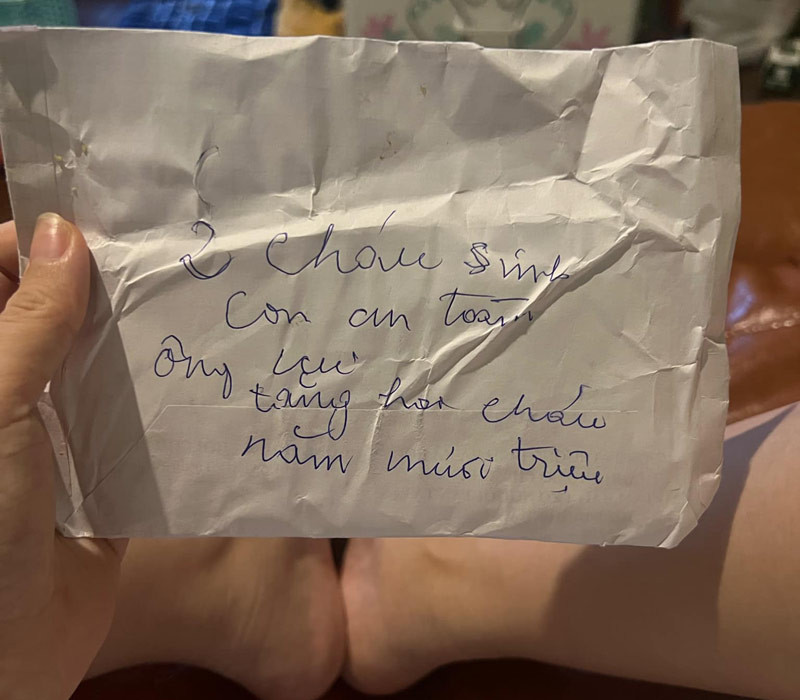 2 cháu sinh
con an toàn
Ông
tặng hai cháu
năm mươi triệu